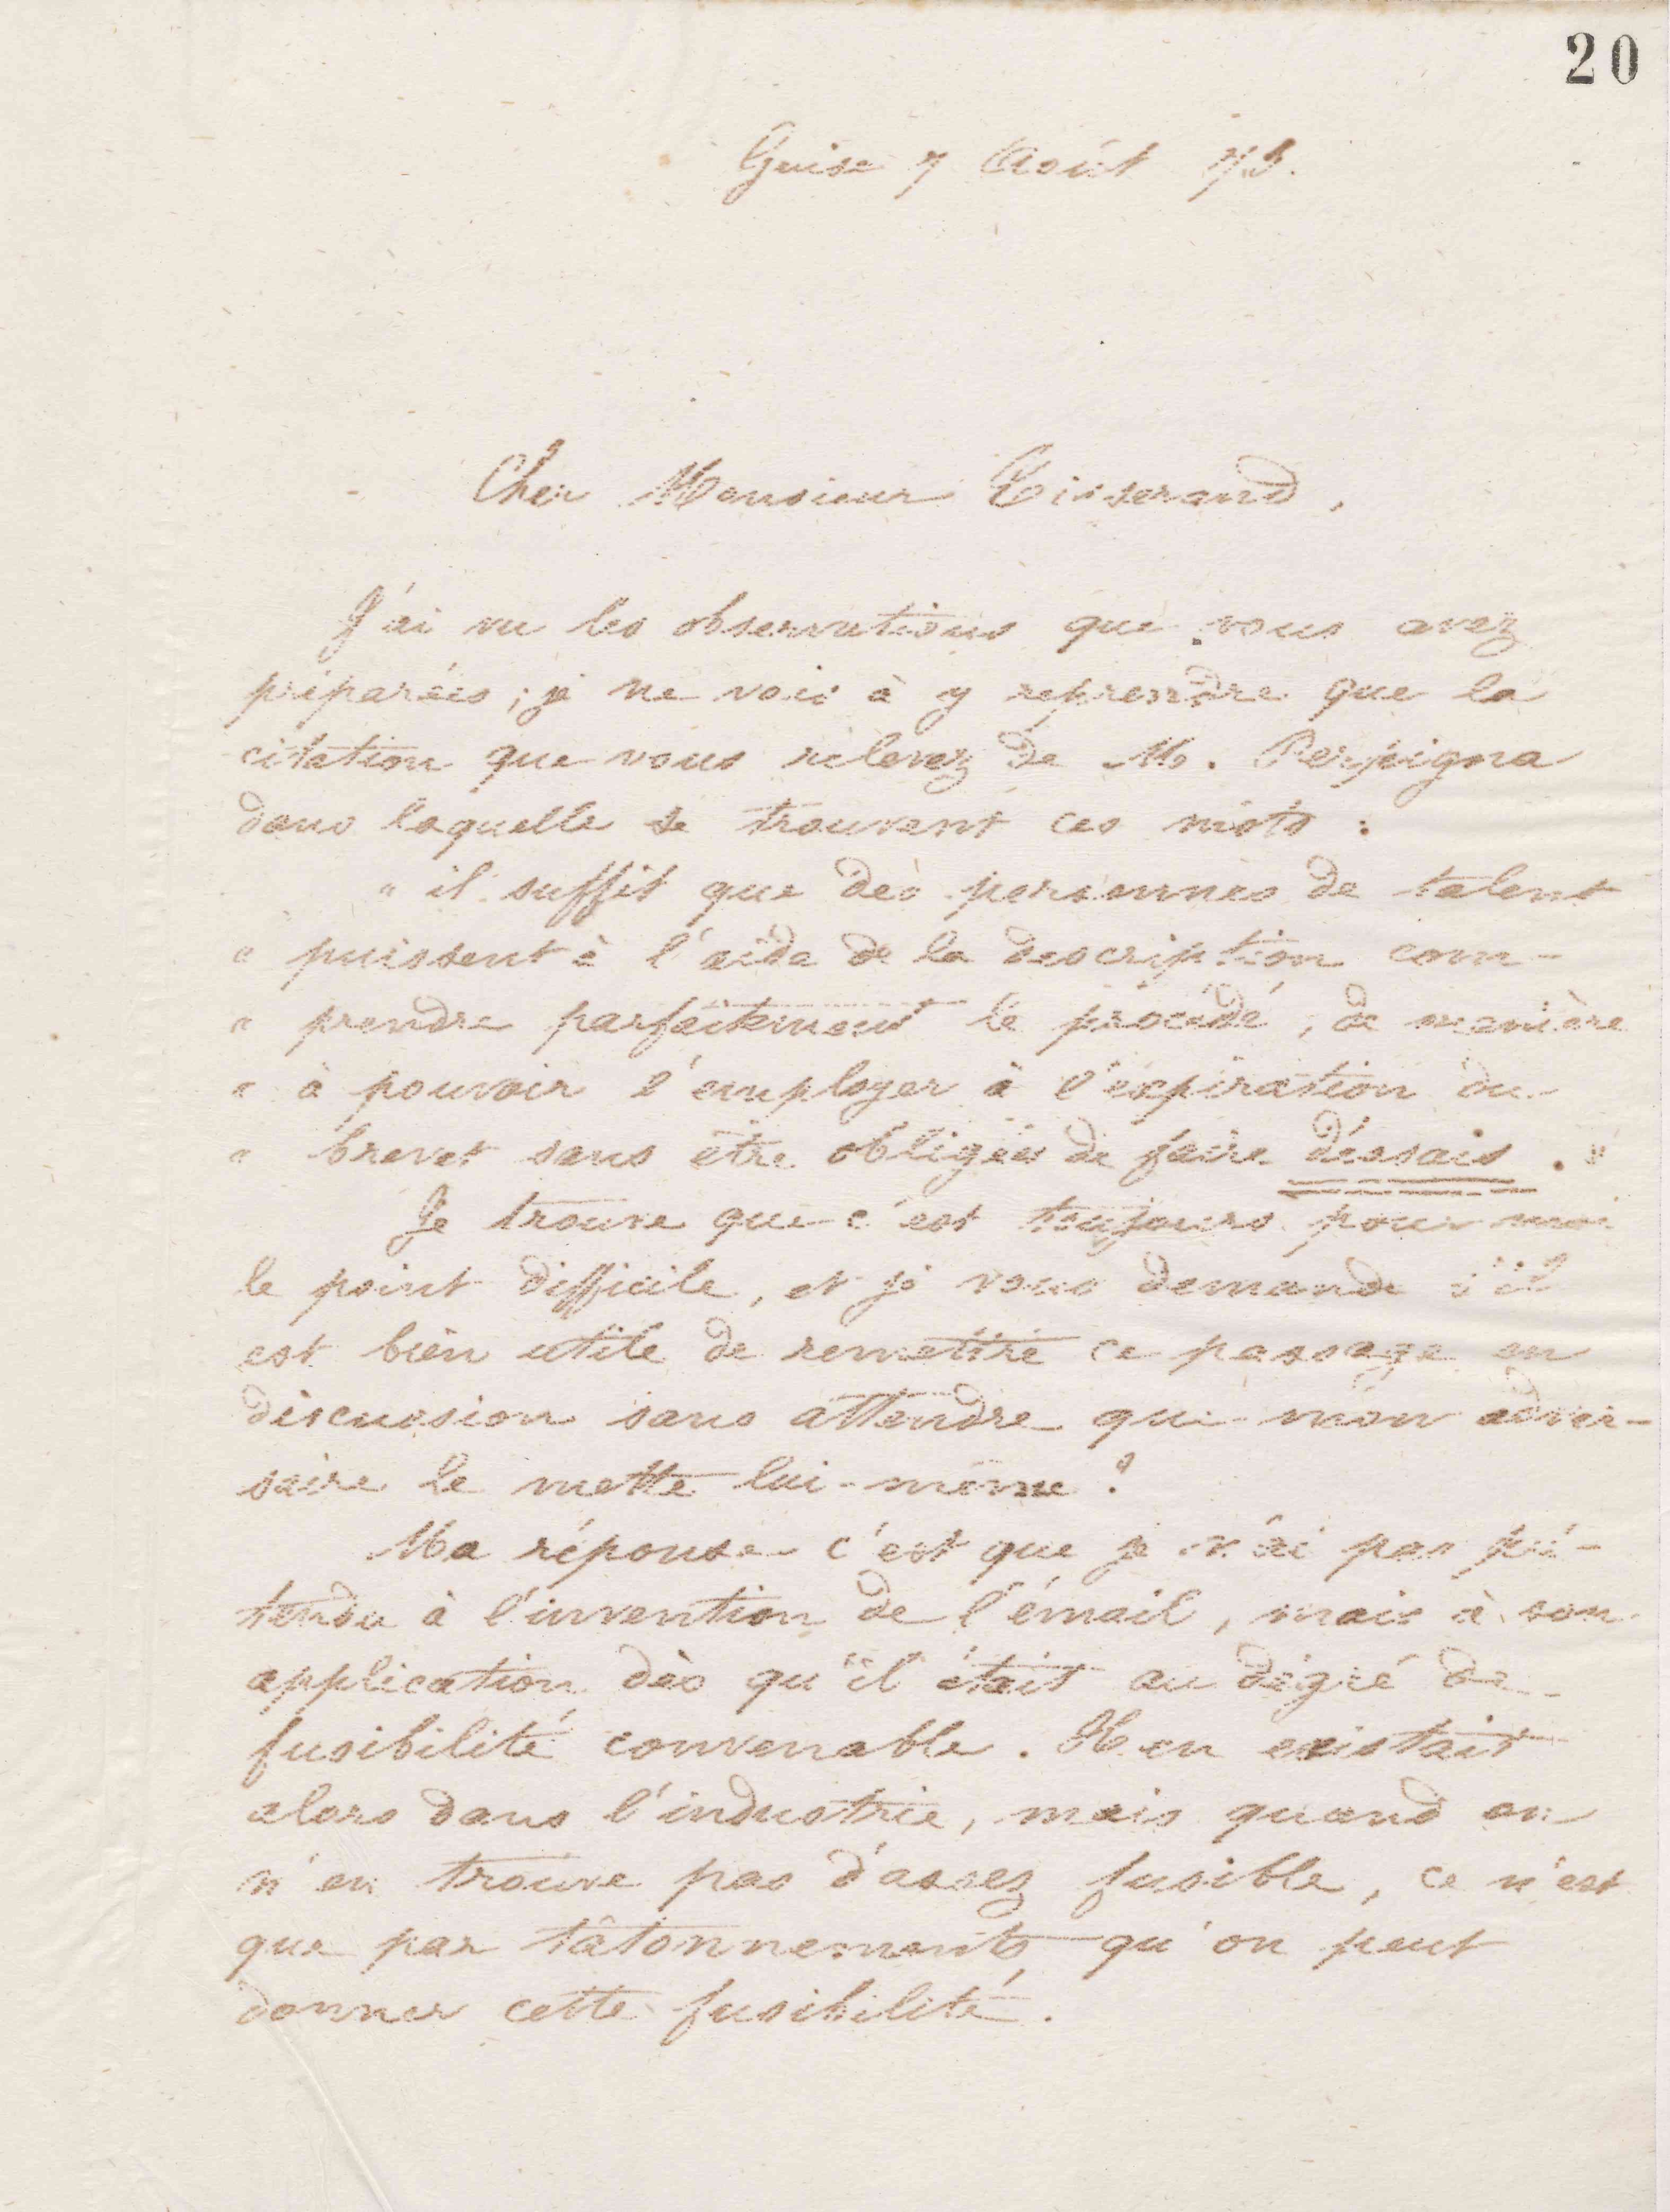 20
Guise 7 Août 73.
Cher Monsieur Tisserand,
J'ai vu les observations que vous avez
préparées ; je ne vois à y reprendre que la
citation que vous relevez de M. Perpigna
dans laquelle se trouvent ces mots :
" il suffit que des personnes de talent
" puissent à l'aide de la description com-
" prendre parfaitement le procédé, de manière
" à pouvoir l'employer à l'expiration du
" brevet sans être obligées de faire d'essais. "
Je trouve que c'est toujours pour moi
le point difficile, et je vous demande s'il
est bien utile de remettre ce passage en
discussion sans attendre que mon adver-
saire le mette lui-même ?
Ma réponse c'est que je n'ai pas pré-
tendu à l'invention de l'émail, mais à son
application dès qu'il était au dégré de
fusibilité convenable. Il en existait
alors dans l'industrie, mais quand on
n'en trouve pas d'assez fusible, ce n'est
que par tâtonnements qu'on peut
donner cette fusibilité.